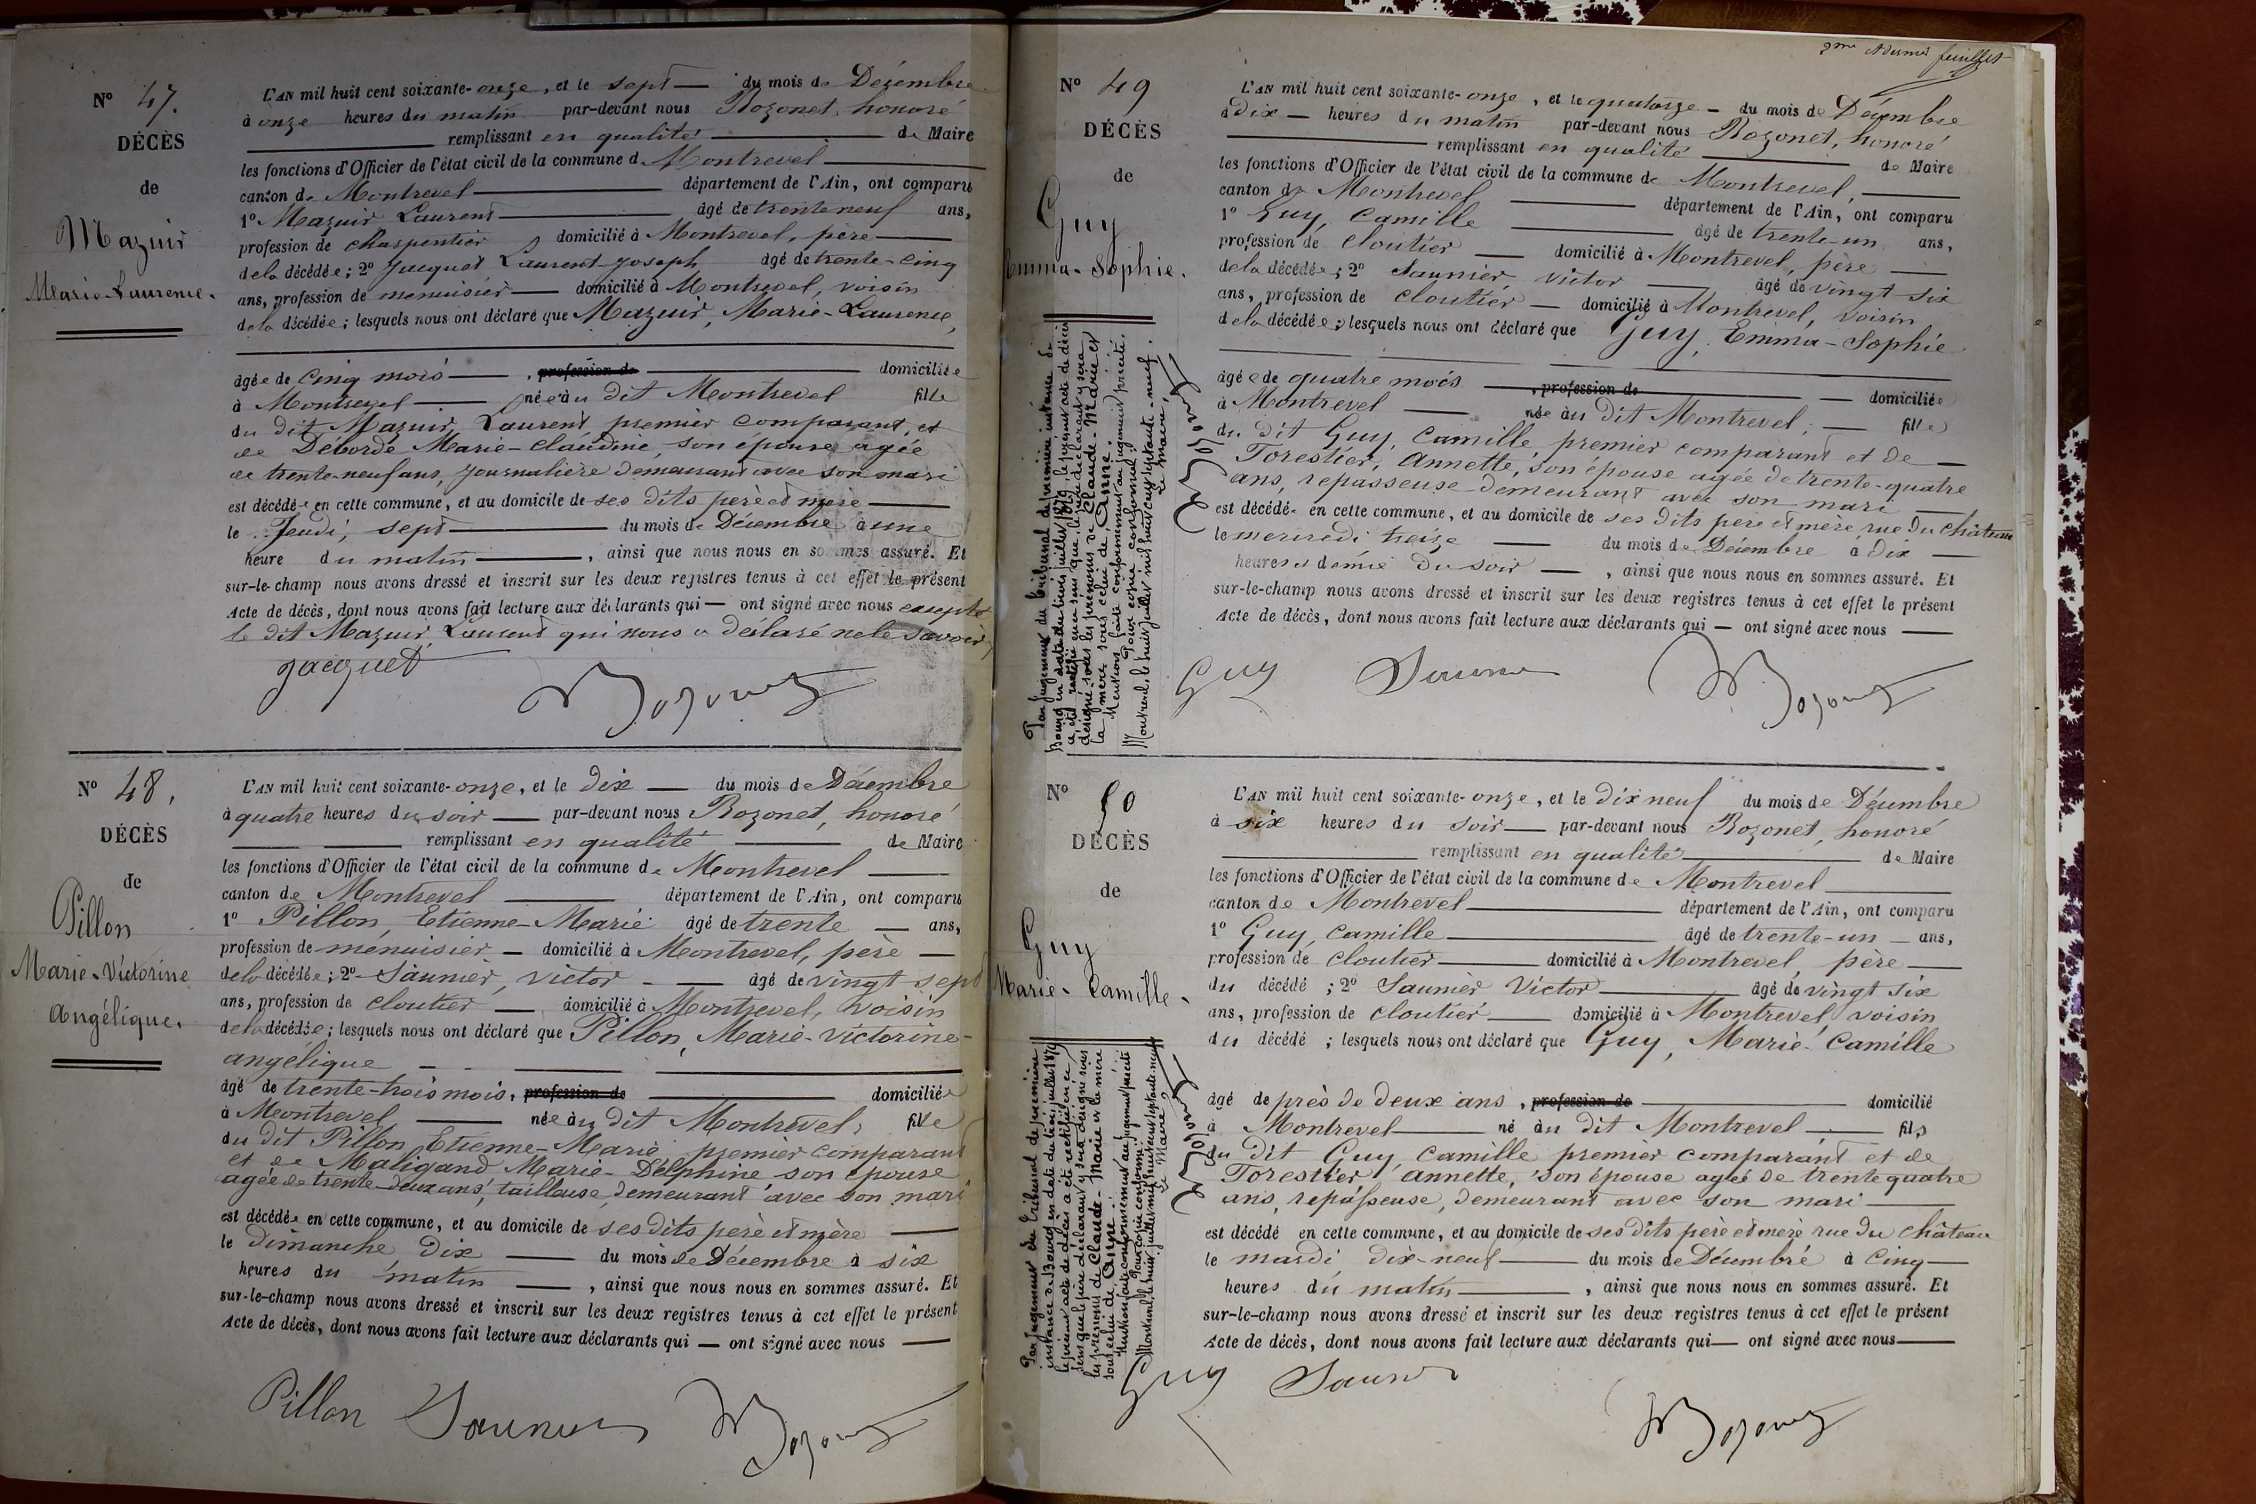 N° 47.
DÉCÈS
de
Mazuir
Marie-Laurence.
L'AN mil huit cent soixante-onze, et le sept — du mois de Décembre
à onze heures du matin par-devant nous Bozonet, honoré
remplissant en qualité de Maire
les fonctions d'Officier de l'état civil de la commune de Montrevel
canton de Montrevel département de l'Ain, ont comparu
1° Mazuir Laurent âgé de trente neuf ans,
profession de charpentier domicilié à Montrevel, père
de la décédée; 2° Jacquet Laurent-Joseph âgé de trente-cinq
ans, profession de menuisier domicilié à Montrevel, voisin
de la décédée; lesquels nous ont déclaré que Mazuir, Marie-Laurence,
âgée de cinq mois, profession de domiciliée
à Montrevel née au dit Montrevel fille
du dit Mazuir, Laurent, premier comparant, et
de Deborde Marie-claudine, son épouse agée
de trente-neuf ans, journalière demeurant avec son mari
est décédée en cette commune, et au domicile de ses dits père et mère
le Jeudi, sept du mois de Décembre à une
heure du matin, ainsi que nous nous en sommes assuré. Et
sur-le-champ nous avons dressé et inscrit sur les deux registres tenus à cet effet le présent
Acte de décès, dont nous avons fait lecture aux déclarants qui — ont signé avec nous excepté
le dit Mazuir, Laurent qui nous a déclaré ne le savoir,
Jacquet Bozonet
N° 48.
DÉCÈS
de
Pillon
Marie-Victorine
Angélique.
L'AN mil huit cent soixante-onze, et le dix — du mois de Décembre
à quatre heures du soir — par-devant nous Bozonet, honoré
remplissant en qualité de Maire
les fonctions d'Officier de l'état civil de la commune de Montrevel
canton de Montrevel département de l'Ain, ont comparu
1° Pillon, Etienne-Marie âgé de trente — ans,
profession de menuisier — domicilié à Montrevel, père —
de la décédée; 2° Saunier, victor — âgé de vingt sept
ans, profession de cloutier — domicilié à Montrevel, voisin
de la décédée; lesquels nous ont déclaré que Pillon, Marie-victorine-
angélique
âgé de trente-trois mois, profession de domiciliée
à Montrevel née au dit Montrevel, fille
du dit Pillon, Etienne-Marie premier comparant
et de Maligand Marie-Delphine son épouse
agée de trente-deux ans, tailleuse, demeurant avec son mari
est décédée en cette commune, et au domicile de ses dits père et mère
le dimanche dix du mois de Décembre à six
heures du matin, ainsi que nous nous en sommes assuré. Et
sur-le-champ nous avons dressé et inscrit sur les deux registres tenus à cet effet le présent
Acte de décès, dont nous avons fait lecture aux déclarants qui — ont signé avec nous
Pillon Saunier Bozonet
feuillet
N° 49
DÉCÈS
de
Guy
Emma-Sophie.
Par Jugement du tribunal de première instance de
Bourg en date du huit juillet 1879, le présent acte de décès
a été rectifié en ce sens que le père déclarant y sera
désigné sous les prénoms de Claude-Marie et
la mère sous celui de Anne.
Mention faite conformément au jugement précité.
Pour copie conforme:
Montrevel, le huit juillet mil huit cent septante-neuf.
Le Maire,
Bozonet
L'AN mil huit cent soixante-onze, et le quatorze — du mois de Décembre
à dix — heures du matin par-devant nous Bozonet, honoré
remplissant en qualité de Maire
les fonctions d'Officier de l'état civil de la commune de Montrevel,
canton de Montrevel département de l'Ain, ont comparu
1° Guy, Camille âgé de trente-un ans,
profession de cloutier — domicilié à Montrevel, père —
de la décédée; 2° Saunier victor — âgé de vingt six
ans, profession de cloutier — domicilié à Montrevel, voisin
de la décédée; lesquels nous ont déclaré que Guy, Emma-Sophie
âgée de quatre mois, profession de domiciliée
à Montrevel née au dit Montrevel, — fille
du dit Guy, Camille, premier comparant et de —
Forestier, Annette, son épouse agée de trente-quatre
ans, repasseuse demeurant avec son mari
est décédée en cette commune, et au domicile de ses dits père et mère, rue du Château
le mercredi treize — du mois de Décembre à dix —
heures et demie du soir —, ainsi que nous nous en sommes assuré. Et
sur-le-champ nous avons dressé et inscrit sur les deux registres tenus à cet effet le présent
Acte de décès, dont nous avons fait lecture aux déclarants qui — ont signé avec nous —
Guy Saunier Bozonet
N° 50
DÉCÈS
de
Guy
Marie-Camille.
Par Jugement du tribunal de première
instance de Bourg en date du huit juillet 1879
le présent acte de décès a été rectifié en ce
sens que le père déclarant y sera désigné sous
les prénoms de Claude-Marie et la mère
sous celui de Anne.
Mention faite conformément au jugement précité
Pour copie conforme:
Montrevel, le huit juillet mil huit cent septante-neuf
Le Maire,
Bozonet
L'AN mil huit cent soixante-onze, et le dix neuf du mois de Décembre
à six heures du soir — par-devant nous Bozonet, honoré
remplissant en qualité de Maire
les fonctions d'Officier de l'état civil de la commune de Montrevel
canton de Montrevel département de l'Ain, ont comparu
1° Guy, Camille âgé de trente-un — ans,
profession de cloutier domicilié à Montrevel, père —
du décédé; 2° Saunier Victor âgé de vingt six
ans, profession de cloutier — domicilié à Montrevel, voisin
du décédé; lesquels nous ont déclaré que Guy, Marie-Camille
âgé de près de deux ans, profession de domicilié
à Montrevel né au dit Montrevel fils
du dit Guy Camille premier comparant et de
Forestier, Annette, son épouse agée de trente quatre
ans, repasseuse, demeurant avec son mari
est décédé en cette commune, et au domicile de ses dits père et mère rue du Château
le mardi dix-neuf du mois de Décembre à cinq —
heures du matin, ainsi que nous nous en sommes assuré. Et
sur-le-champ nous avons dressé et inscrit sur les deux registres tenus à cet effet le présent
Acte de décès, dont nous avons fait lecture aux déclarants qui — ont signé avec nous —
Guy Saunier Bozonet